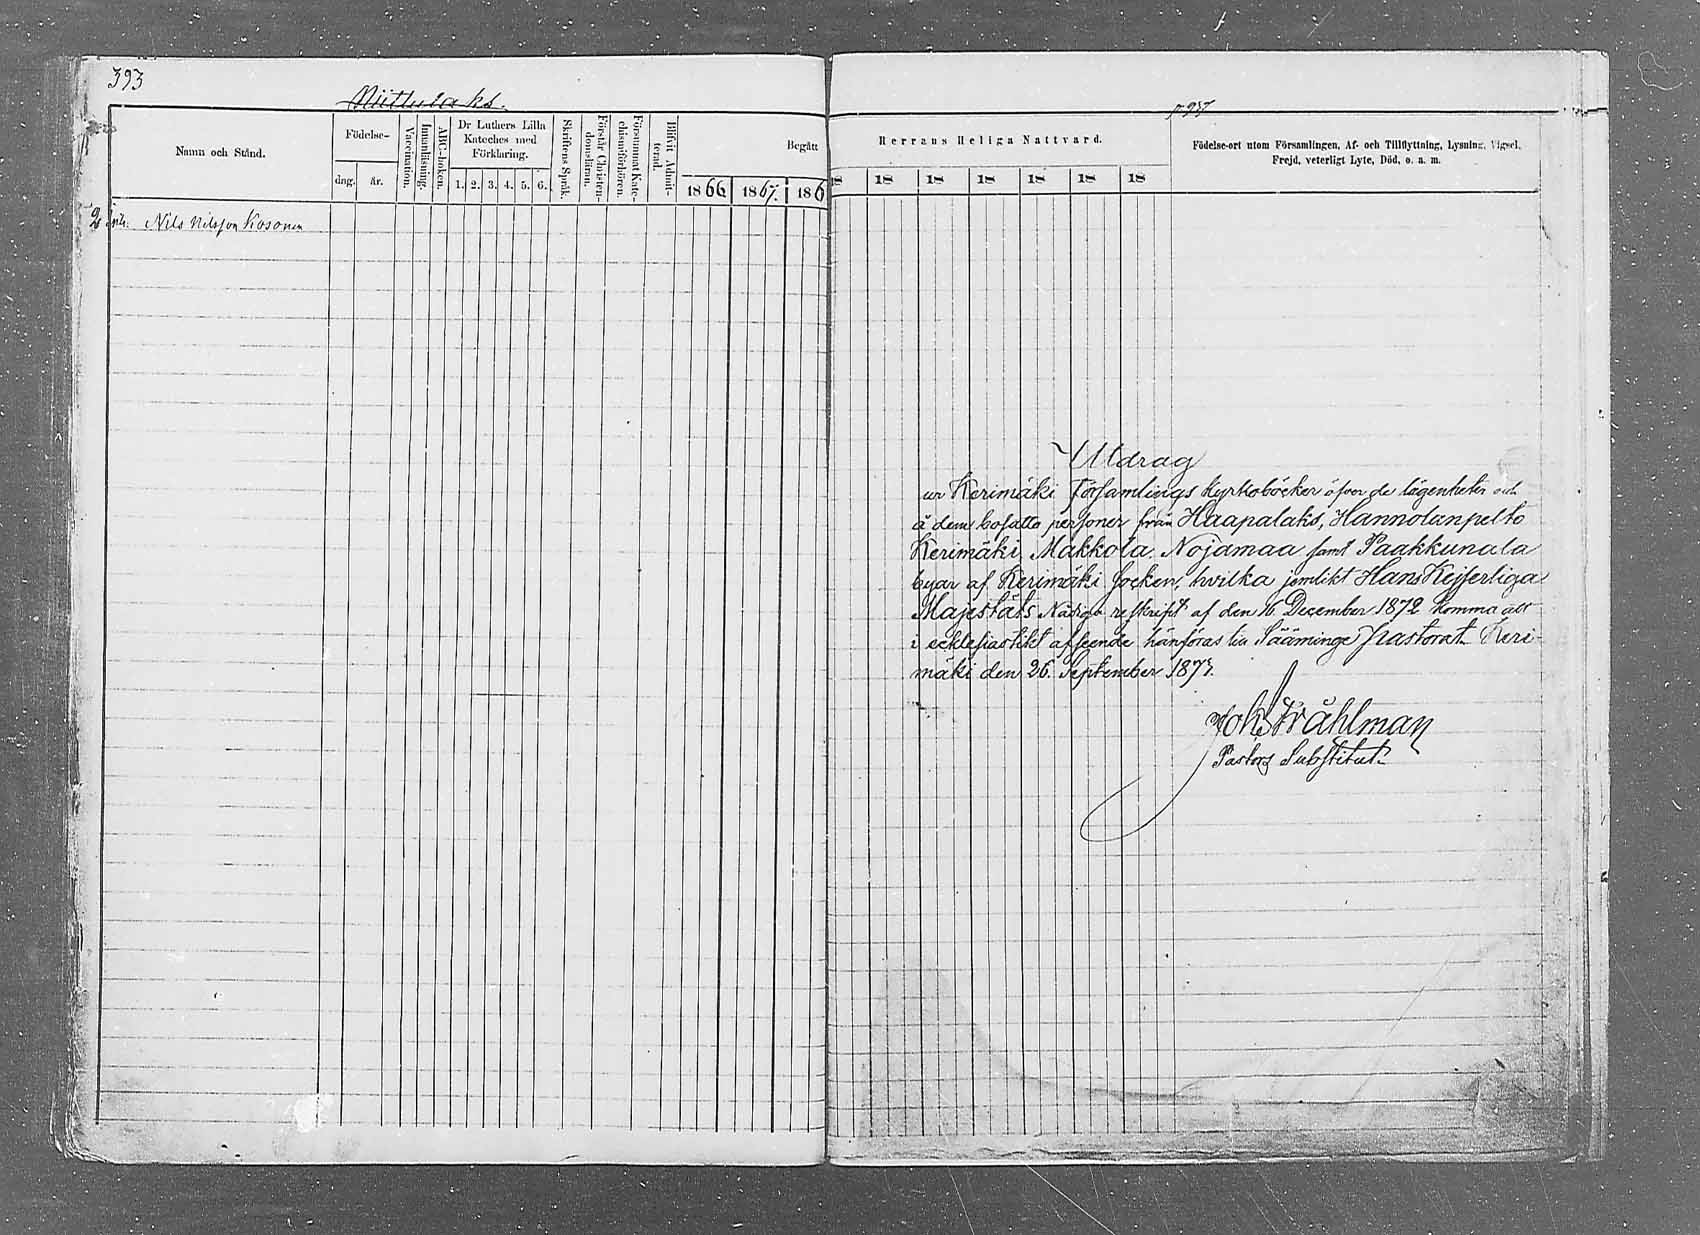 393
Niittulaks.
Namn och Stånd.
Födelse-
dng.
år.
Vaccination.
Innanläsning.
ABC-boken.
Dr Luthers Lilla
Kateches med
Förklaring.
1. 2. 3. 4. 5. 6.
Skriftens Språk.
Förstår Christen-
domsläran.
Försummat Kate-
chismiförhören.
Blifvit Admit-
terad.
Begått
1866 1867. 186
2 Nils Nilsson Kosonen
Herrans Heliga Nattvard.
18 18 18 18 18 18 18
Födelse-ort utom Församlingen, Af- och Tillflyttning, Lysning, Vigsel,
Frejd, veterligt Lyte, Död, o. a. m.
Utdrag
ur Kerimäki Församlings Kyrkoböcker öfver de lägenheter och
å dem bosatta personer från Haapalaks, Hannolanpelto
Kerimäki, Makkola, Nojamaa samt Paakkunala
byar af Kerimäki socken, hvilka jemlikt Hans Kejserliga
Majestäts Nådiga reskript af den 16 December 1872 komma att
i ecklesiastikt afseende hänföras till Sääminge pastorat. Keri-
mäki den 26. September 1873.
Joh. Stråhlman
Pastors Substitut.